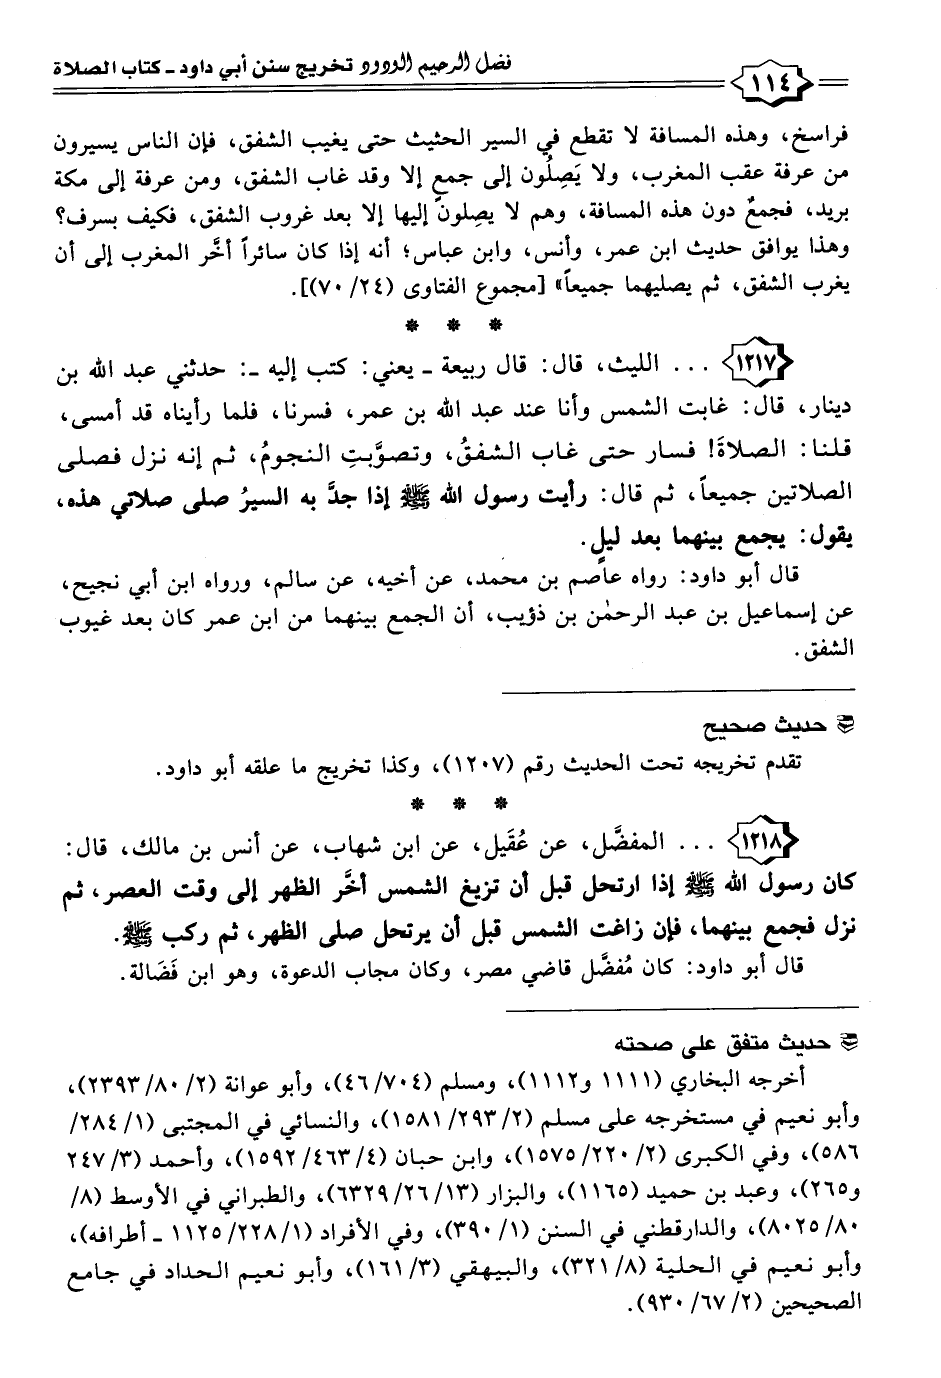 ١١٤ فضل الرحيم الودود تخريج سنن أبي داود ـ كتاب الصلاة
فراسخ، وهذه المسافة لا تقطع في السير الحثيث حتى يغيب الشفق، فإن الناس يسيرون
من عرفة عقب المغرب، ولا يَصِلُون إلى جمعٍ إلا وقد غاب الشفق، ومن عرفة إلى مكة
بريد، فجمعٌ دون هذه المسافة، وهم لا يصلون إليها إلا بعد غروب الشفق، فكيف بسرف؟
وهذا يوافق حديث ابن عمر، وأنس، وابن عباس؛ أنه إذا كان سائراً أخَّر المغرب إلى أن
يغرب الشفق، ثم يصليهما جميعاً» [مجموع الفتاوى (٢٤/ ٧٠)].
* * *
١٢١٧ ... الليث، قال: قال ربيعة ـ يعني: كتب إليه ـ: حدثني عبد الله بن
دينار، قال: غابت الشمس وأنا عند عبد الله بن عمر، فسرنا، فلما رأيناه قد أمسى،
قلنا: الصلاةَ! فسار حتى غاب الشفقُ، وتصوَّبتِ النجومُ، ثم إنه نزل فصلى
الصلاتين جميعاً، ثم قال: رأيت رسول الله ﷺ إذا جدَّ به السيرُ صلى صلاتي هذه،
يقول: يجمع بينهما بعد ليلٍ.
قال أبو داود: رواه عاصم بن محمد، عن أخيه، عن سالم، ورواه ابن أبي نجيح،
عن إسماعيل بن عبد الرحمٰن بن ذؤيب، أن الجمع بينهما من ابن عمر كان بعد غيوب
الشفق.
حديث صحيح
تقدم تخريجه تحت الحديث رقم (١٢٠٧)، وكذا تخريج ما علقه أبو داود.
* * *
١٢١٨ ... المفضَّل، عن عُقَيل، عن ابن شهاب، عن أنس بن مالك، قال:
كان رسول الله ﷺ إذا ارتحل قبل أن تزيغ الشمس أخَّر الظهر إلى وقت العصر، ثم
نزل فجمع بينهما، فإن زاغت الشمس قبل أن يرتحل صلى الظهر، ثم ركب ﷺ.
قال أبو داود: كان مُفضَّل قاضي مصر، وكان مجاب الدعوة، وهو ابن فَضَالة.
حديث متفق على صحته
أخرجه البخاري (١١١١ و١١١٢)، ومسلم (٤٦/٧٠٤)، وأبو عوانة (٢/ ٨٠/ ٢٣٩٣)،
وأبو نعيم في مستخرجه على مسلم (٢/ ٢٩٣/ ١٥٨١)، والنسائي في المجتبى (١/ ٢٨٤/
٥٨٦)، وفي الكبرى (٢/ ٢٢٠/ ١٥٧٥)، وابن حبان (٤/ ٤٦٣/ ١٥٩٢)، وأحمد (٣/ ٢٤٧
و٢٦٥)، وعبد بن حميد (١١٦٥)، والبزار (١٣/ ٢٦/ ٦٣٢٩)، والطبراني في الأوسط (٨/
٨٠/ ٨٠٢٥)، والدارقطني في السنن (١/ ٣٩٠)، وفي الأفراد (١/ ٢٢٨/ ١١٢٥ ـ أطرافه)،
وأبو نعيم في الحلية (٨/ ٣٢١)، والبيهقي (٣/ ١٦١)، وأبو نعيم الحداد في جامع
الصحيحين (٢/ ٦٧/ ٩٣٠).